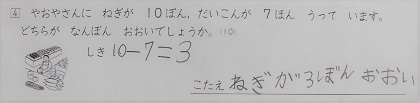 4 やおやさんに ねぎが 10ぽん、だいこんが 7ほん うって います。
どちらが なんぼん おおいでしょうか。(10)
しき 10-7=3
こたえ ねぎが3ぼん おおい